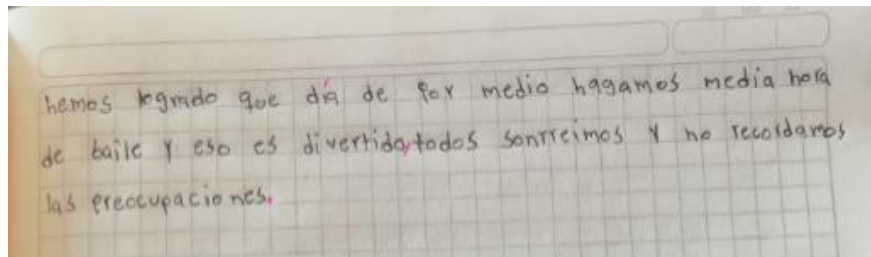 hemos logrado que día de por medio hagamos media hora
de baile y eso es divertido, todos sonrreimos y no recordamos
las preocupaciones.